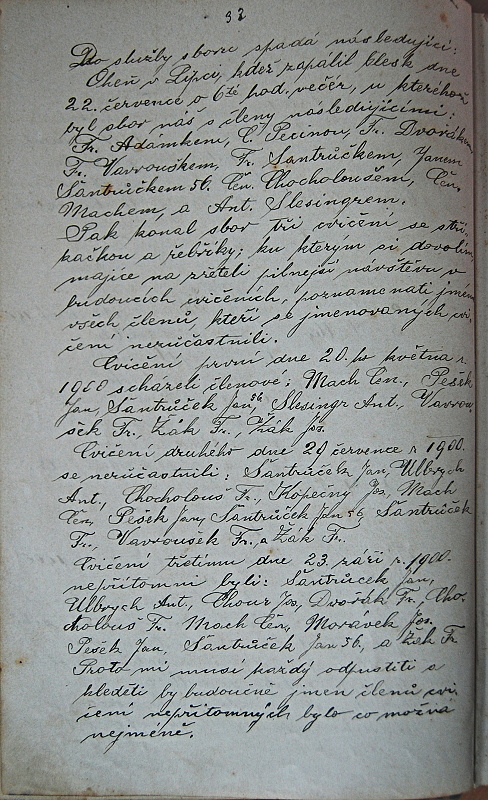 32
Do služby sboru spadá následující:
Oheň v Lipci, kdež zapálil blesk dne
22. července o 6té hod. večer, u kteréhož
byl sbor náš s členy následujícími:
Fr. Adamkem, Č. Pecinou, Fr. Dvořákem
Fr. Vavrouškem, Fr. Šantrůčkem, Janem
Šantrůčkem 56. Čen. Chocholoušem, Čen.
Machem, a Ant. Slesingrem.
Pak konal sbor tři cvičení se stří-
kačkou a řebříky; ku kterým si dovolím
majíce na zřeteli pilnější návštěvu v
budoucích cvičeních, poznamenati jmén
všech členů, kteří se jmenovaných cvi-
čení nezúčastnili.
Cvičení první dne 20. ho května r.
1900 scházeli členové: Mach Čen., Pešek
Jan, Šantrůček Jan 56, Slesingr Ant., Vavrou-
šek Fr., Žák Fr., Žák Jos.
Cvičení druhého dne 29 července r 1900.
se nezúčastnili: Šantrůček Jan, Ulbrych
Ant, Chocholouš Fr., Kopečný Jos, Mach
Čen, Pešek Jan, Šantrůček Jan 56, Šantrůček
Fr., Vavroušek Fr., a Žák Fr.
Cvičení třetímu dne 23. září r. 1900.
nepřítomni byli: Šantrůček Jan,
Ulbrych Ant., Chour Jos, Dvořák Fr., Cho-
cholouš Fr. Mach Čen, Morávek Jos.
Pešek Jan, Šantrůček Jan 56, a Žák Fr
Proto mi musí každý odpustiti a
hleděti by budoucně jmen členů cvi-
čení nepřítomných bylo co možná
nejméně.